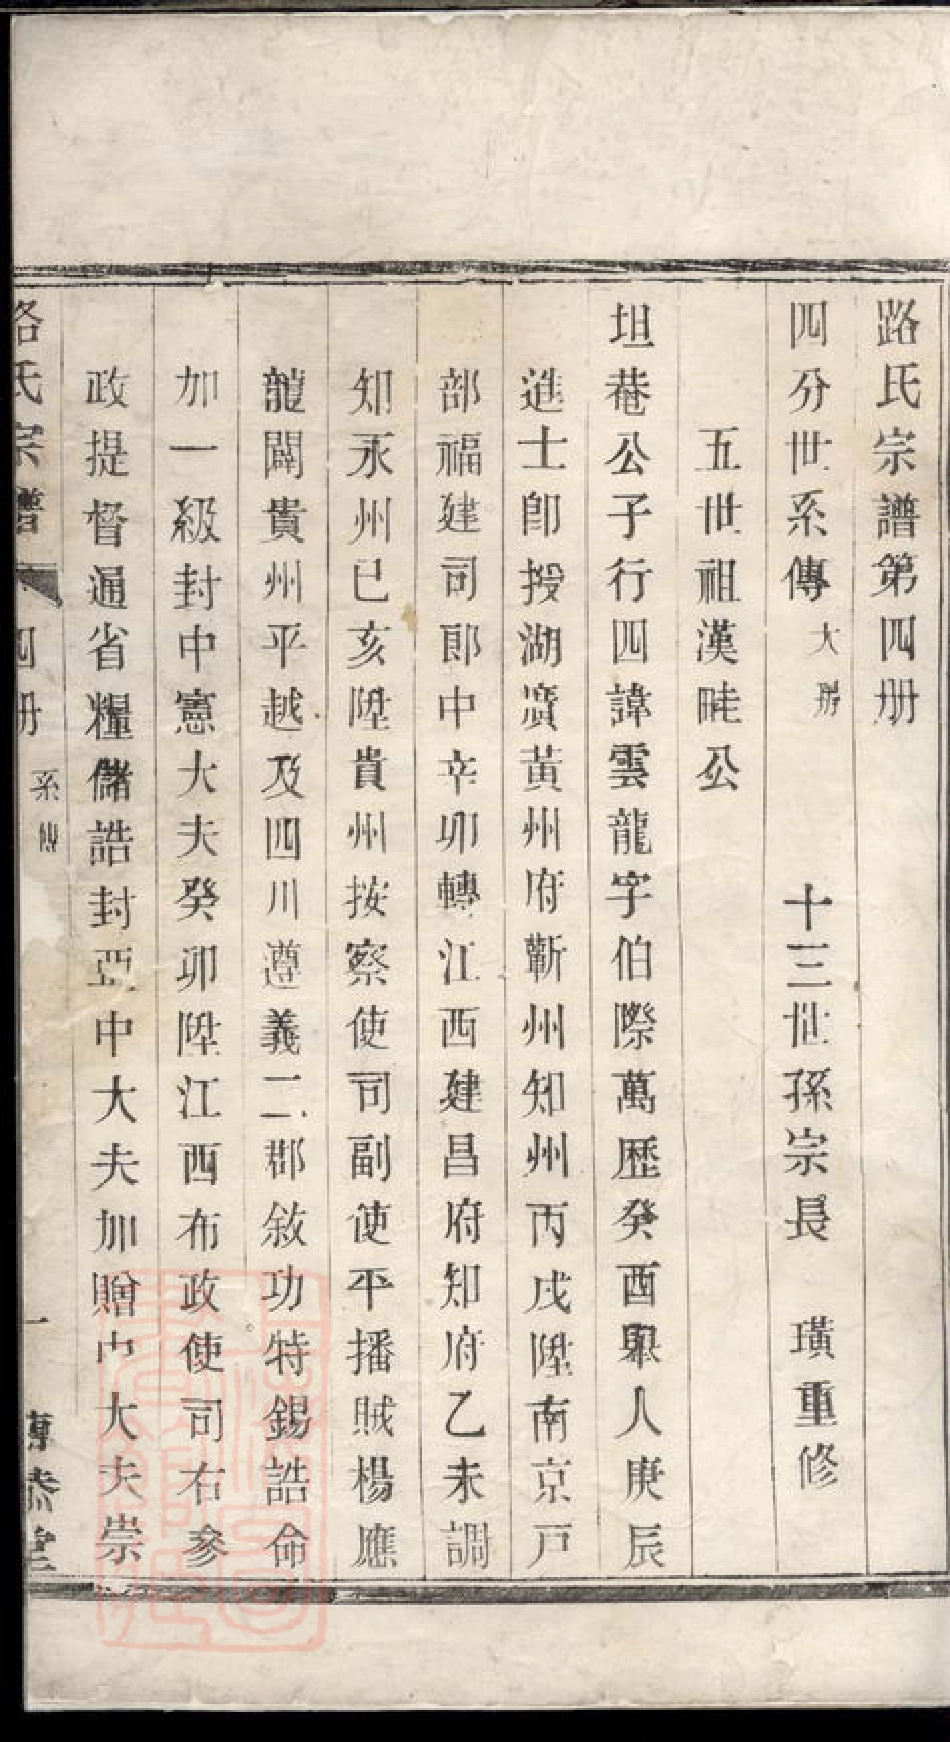 路氏宗譜第四册
四分世系傳 大房 十三世孫宗長 璜重修
五世祖漢畦公
坦菴公子行四諱雲龍字伯際萬歷癸酉舉人庚辰
進士卽授湖廣黃州府蘄州知州丙戌陞南京戸
部福建司郎中辛卯轉江西建昌府知府乙未調
知永州己亥陞貴州按察使司副使平播賊楊應
龍闢貴州平越及四川遵義二郡敘功特錫誥命
加一級封中憲大夫癸卯陞江西布政使司右參
政提督通省糧儲誥封亞中大夫加贈中大夫崇
路氏宗譜 四册 系傳 一 惇恭堂